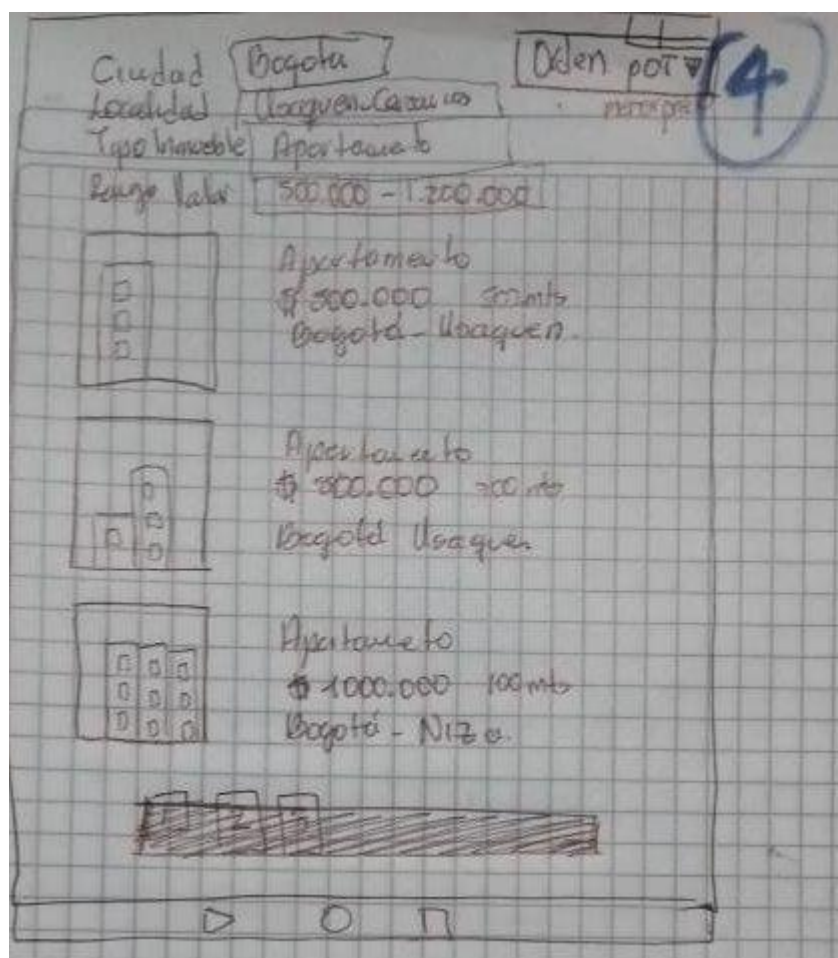 Ciudad Bogota Orden por
4
Localidad Usaquen
menor
Tipo Inmueble Apartamento
Rango Valor 500.000 - 1.200.000
Apartamento
$ 500.000
Bogotá - Usaquen.
Apartamento
$ 800.000 200 mts
Bogotá Usaquen
Apartameto
$ 1000.000 100 mts
Bogotá - Niza.
1 2 3